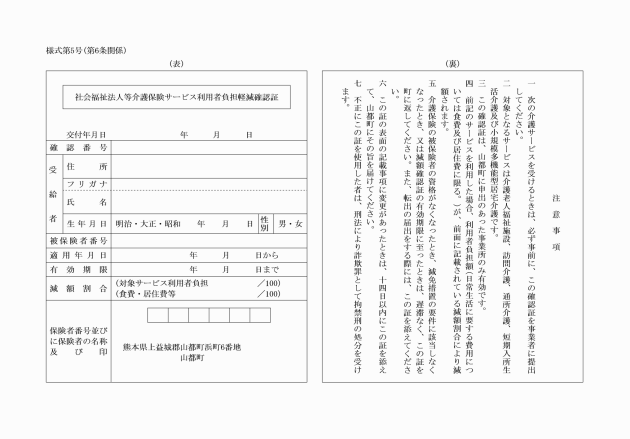 様式第5号(第6条関係)
(表)
社会福祉法人等介護保険サービス利用者負担軽減確認証
交付年月日　年　月　日
確認番号
受給者
住所
フリガナ
氏名
生年月日　明治・大正・昭和　年　月　日　性別　男・女
被保険者番号
適用年月日　年　月　日から
有効期限　年　月　日まで
減額割合　(対象サービス利用者負担　／100)
(食費・居住費等　／100)
保険者番号並び
に保険者の名称
及び印
熊本県上益城郡山都町浜町6番地
山都町
(裏)
注意事項
一　次の介護サービスを受けるときは、必ず事前に、この確認証を事業者に提出
してください。
二　対象となるサービスは介護老人福祉施設、訪問介護、通所介護、短期入所生
活介護及び小規模多機能型居宅介護です。
三　この確認証は、山都町に申出のあった事業所のみ有効です。
四　前記のサービスを利用した場合、利用者負担額(日常生活に要する費用につ
いては食費及び居住費に限る。)が、前面に記載されている減額割合により減
額されます。
五　介護保険の被保険者の資格がなくなったとき、減免措置の要件に該当しなく
なったとき、又は減額確認証の有効期限に至ったときは、遅滞なく、この証を
町に返してください。また、転出の届出をする際には、この証を添えてくださ
い。
六　この証の表面の記載事項に変更があったときは、十四日以内にこの証を添え
て、山都町にその旨を届けてください。
七　不正にこの証を使用した者は、刑法により詐欺罪として拘禁刑の処分を受け
ます。